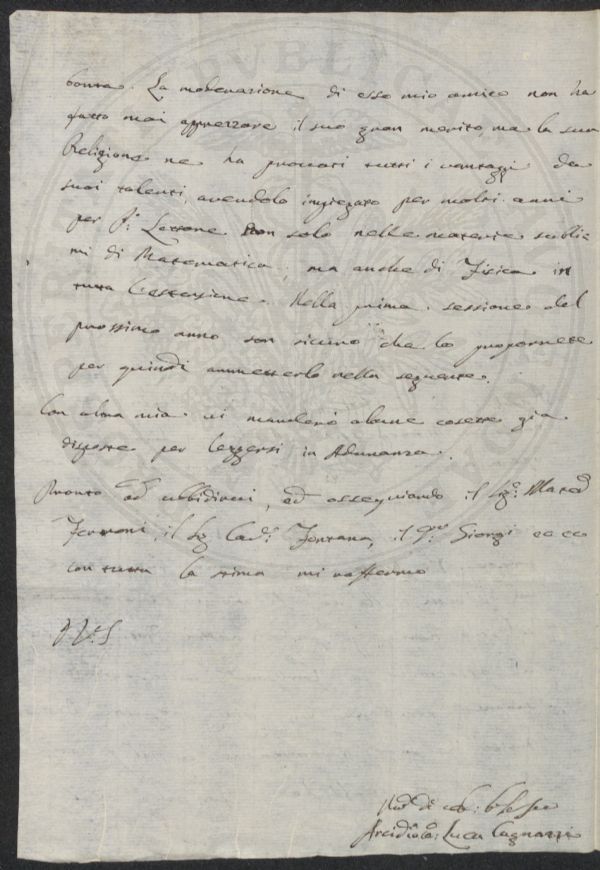 bontà. La moderazione di esso mio amico non ha
fatto mai apprezzare il suo gran merito, ma la sua
Religione ne ha provati tutti i vantaggi de
suoi talenti, avendolo impiegato per molti anni
per P.e Lettore non solo nelle materie subli
mi di Matematica, ma anche di Fisica in
tutta l'estensione. Nella prima sessione del
prossimo anno son sicuro che lo proporrete
per quindi ammetterlo nella seguente.
Con altra mia vi manderò alcune cosette già
disposte per leggersi in Adunanza.
Pronto ad ubbidirvi, ed ossequiando il Sig.
il Sig. Cav. Fontana, il Giorgi ec ec
con tutta la stima mi raffermo
di
Arcidiac: Luca Cagnazzi
PVBLICA